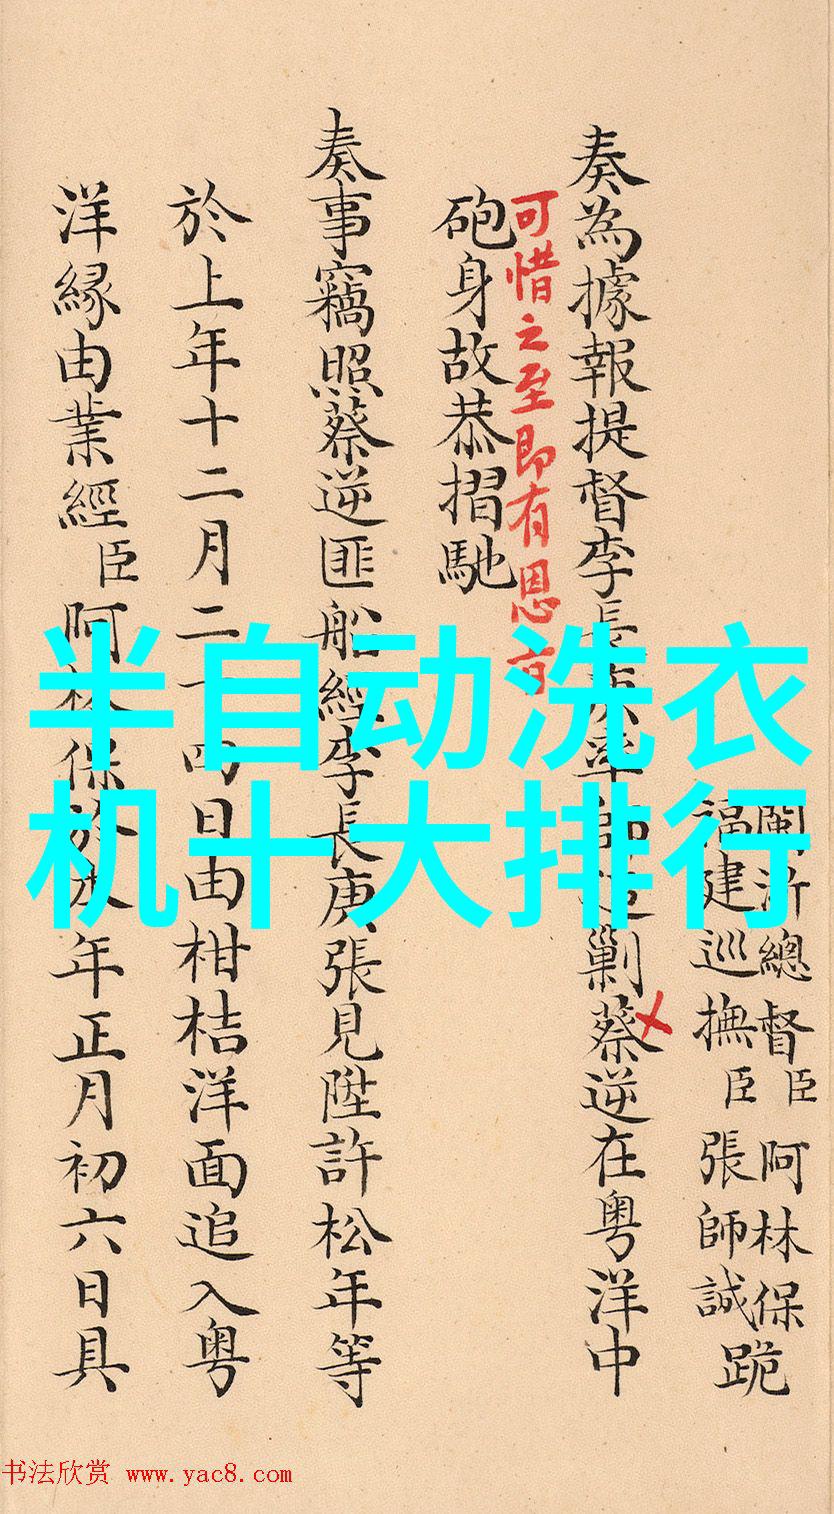 閩浙總督臣阿林保
福建巡撫臣張師誠
跪
奏為據報提督李長庚率師追剿蔡逆在粵洋中
可惜之至即有恩旨
砲身故恭摺馳
奏事竊照蔡逆匪船經李長庚張見陞許松年等
於上年十二月二十四日由柑桔洋面追入粵
洋緣由業經臣阿林保於本年正月初六日具
半自动洗衣
机十大排行
书法欣赏 www.yac8.com